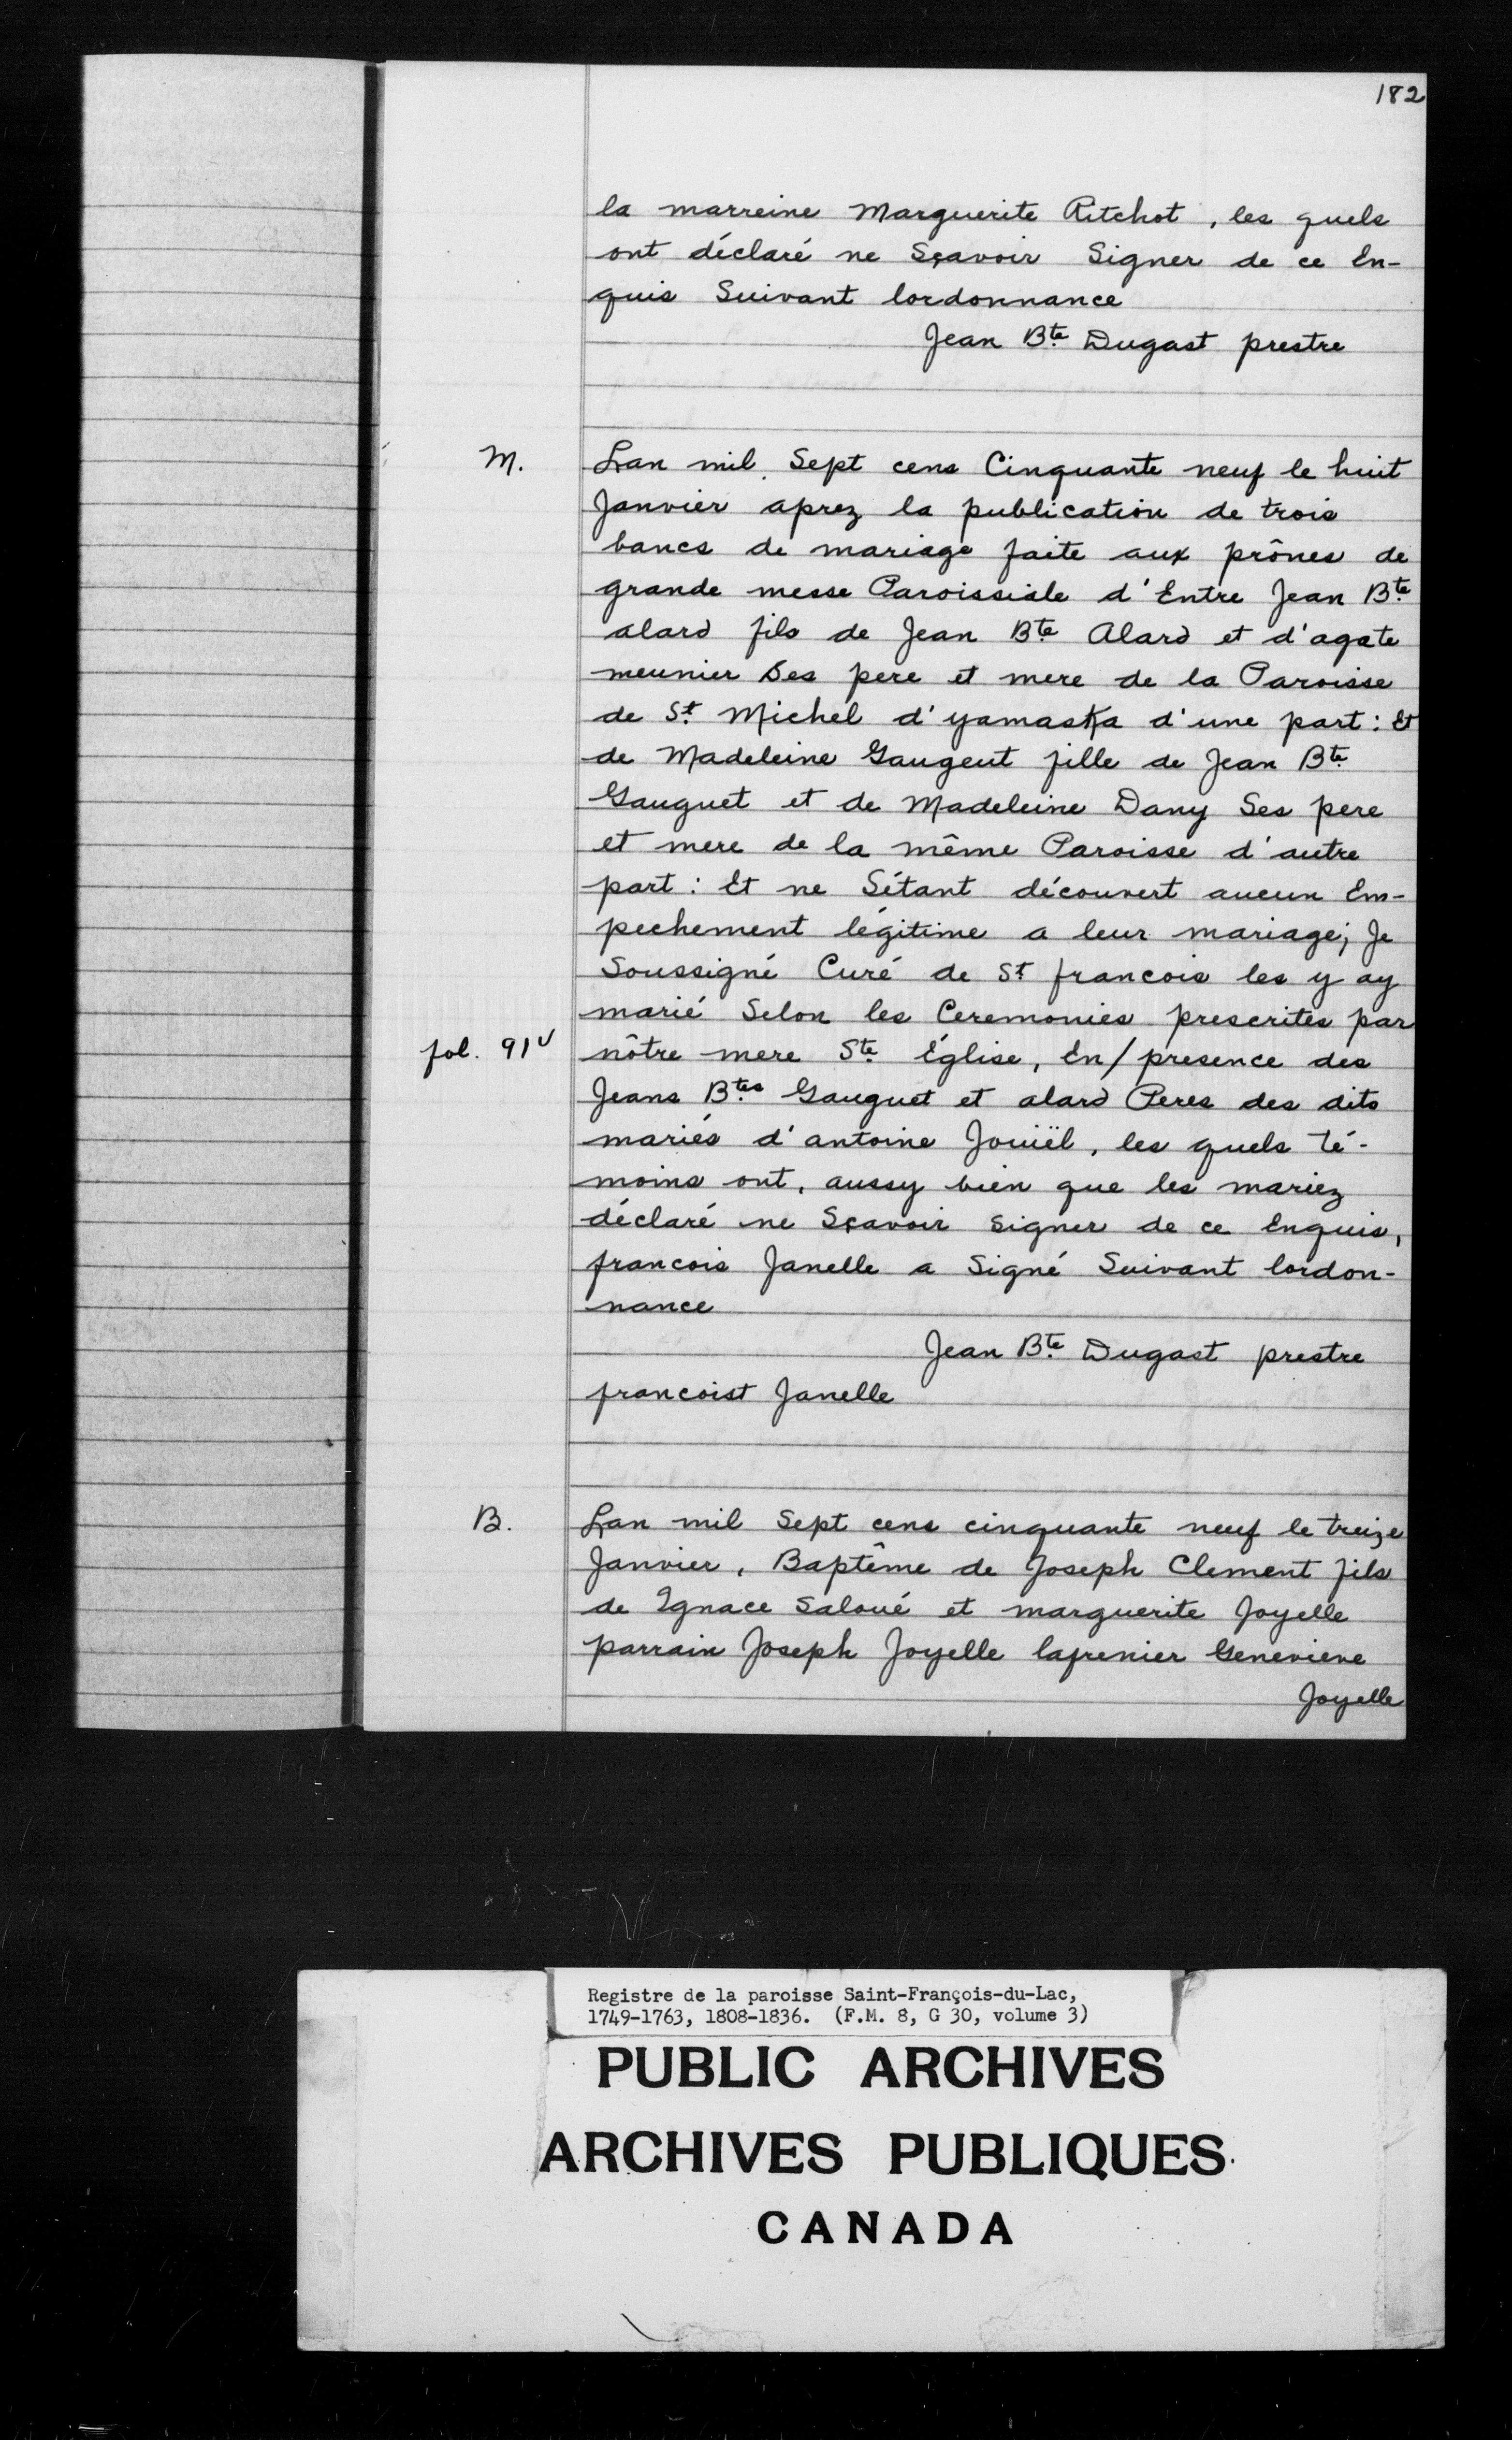 182
la marreine Marguerite Ritchot, les quels
ont déclaré ne Sçavoir Signer de ce En-
quis Suivant lordonnance
Jean Bte Dugast prestre
M.
Lan mil Sept cens Cinquante neuf le huit
Janvier aprez la publication de trois
bancs de mariage faite aux prônes de
grande messe Paroissiale d'Entre Jean Bte
alard fils de Jean Bte Alard et d'agate
meunier Ses pere et mere de la Paroisse
de St Michel d'yamaska d'une part: Et
de Madeleine Gaugeut fille de Jean Bte
Gauguet et de Madeleine Dany Ses pere
et mere de la même Paroisse d'autre
part: Et ne Sétant découvert aucun Em-
pechement légitime a leur mariage; Je
Soussigné Curé de St francois les y ay
marié Selon les Ceremonies prescrites par
fol. 91v
nôtre mere Ste Église, En/presence des
Jeans Btes Gauguet et alard Peres des dits
mariés d'antoine Jouiël, les quels té-
moins ont, aussy bien que les mariez
déclaré ne Sçavoir Signer de ce Enquis,
francois Janelle a Signé Suivant lordon-
nance
Jean Bte Dugast prestre
francoist Janelle
B.
Lan mil Sept cens cinquante neuf le treize
Janvier, Baptême de Joseph Clement fils
de Ignace Saloué et marguerite Joyelle
parrain Joseph Joyelle lafrenier Genevieve
Joyelle
Registre de la paroisse Saint-François-du-Lac,
1749-1763, 1808-1836. (F.M. 8, G 30, volume 3)
PUBLIC ARCHIVES
ARCHIVES PUBLIQUES
CANADA